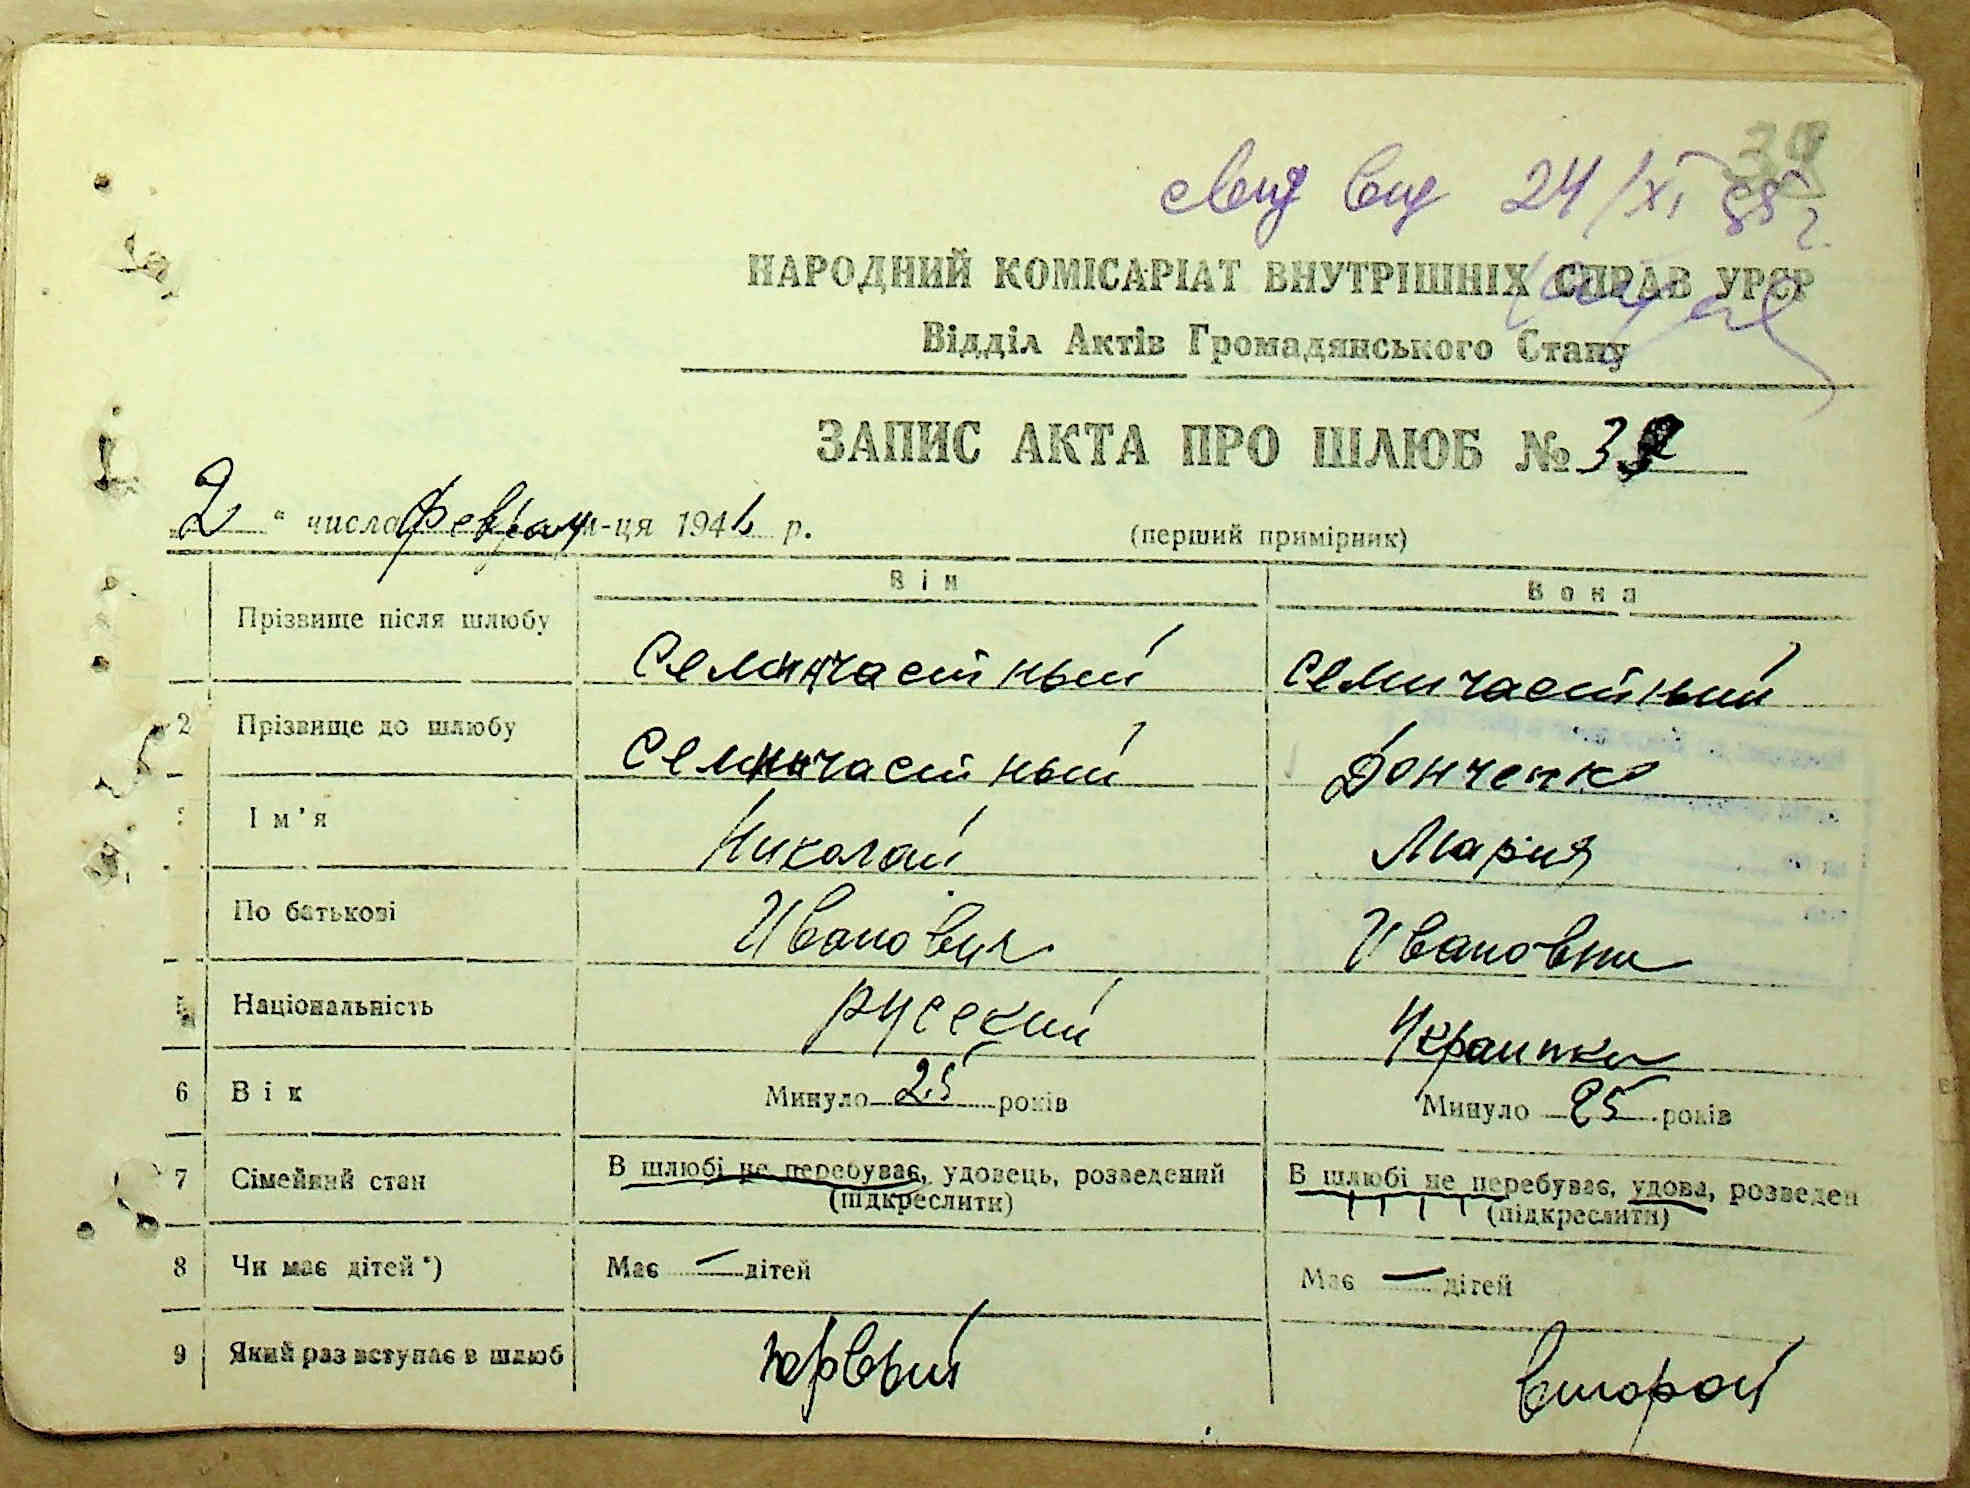 свид выд 24/XI 85 г.
НАРОДНИЙ КОМІСАРІАТ ВНУТРІШНІХ СПРАВ УРСР
Відділ Актів Громадянського Стану
ЗАПИС АКТА ПРО ШЛЮБ №
„2“ числа феврал м-ця 194 р.
(перший примірник)
Він Вона
Прізвище після шлюбу Семичастный Семичастный
2 Прізвище до шлюбу Семичастный Донченко
Ім'я Николай Мария
По батькові Иванович Ивановна
5 Національність русский Украинка
6 Вік Минуло 25 років Минуло 25 років
7 Сімейний стан В шлюбі не перебуває, удовець, розведений (підкреслити) В шлюбі не перебуває, удова, розведен (підкреслити)
8 Чи має дітей*) Має — дітей Має — дітей
9 Який раз вступає в шлюб первый второй